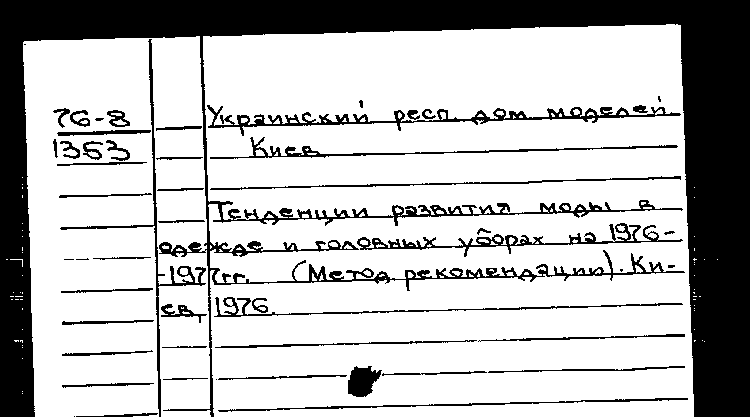 76-8
1353
Украинский респ. дом моделей.
Киев
Тенденции развития моды в
одежде и головных уборах на 1976-
-1977гг. (Метод. рекомендации). Ки-
ев, 1976.